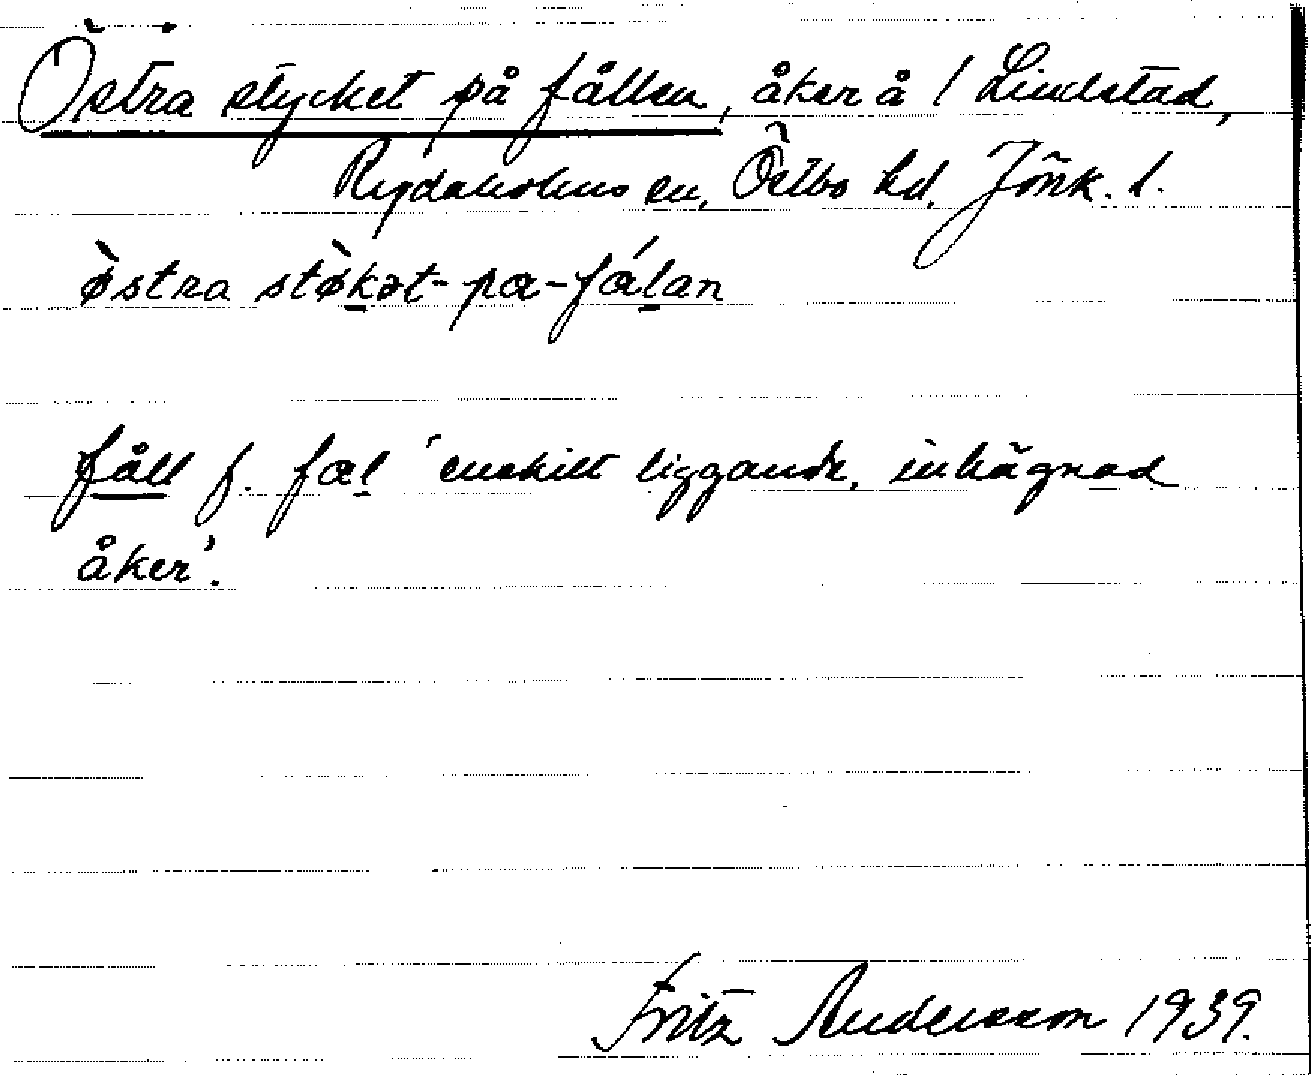 Östra stycket på fållen, åker å / Lindstad,
Rydaholms sn, Östbo hd, Jönk. l.
ø̀stra stø̀kət-pɑ-fɑ́lan
fåll f. fɑl 'enskilt liggande, inhägnad
åker'.
Fritz Andersson 1939.